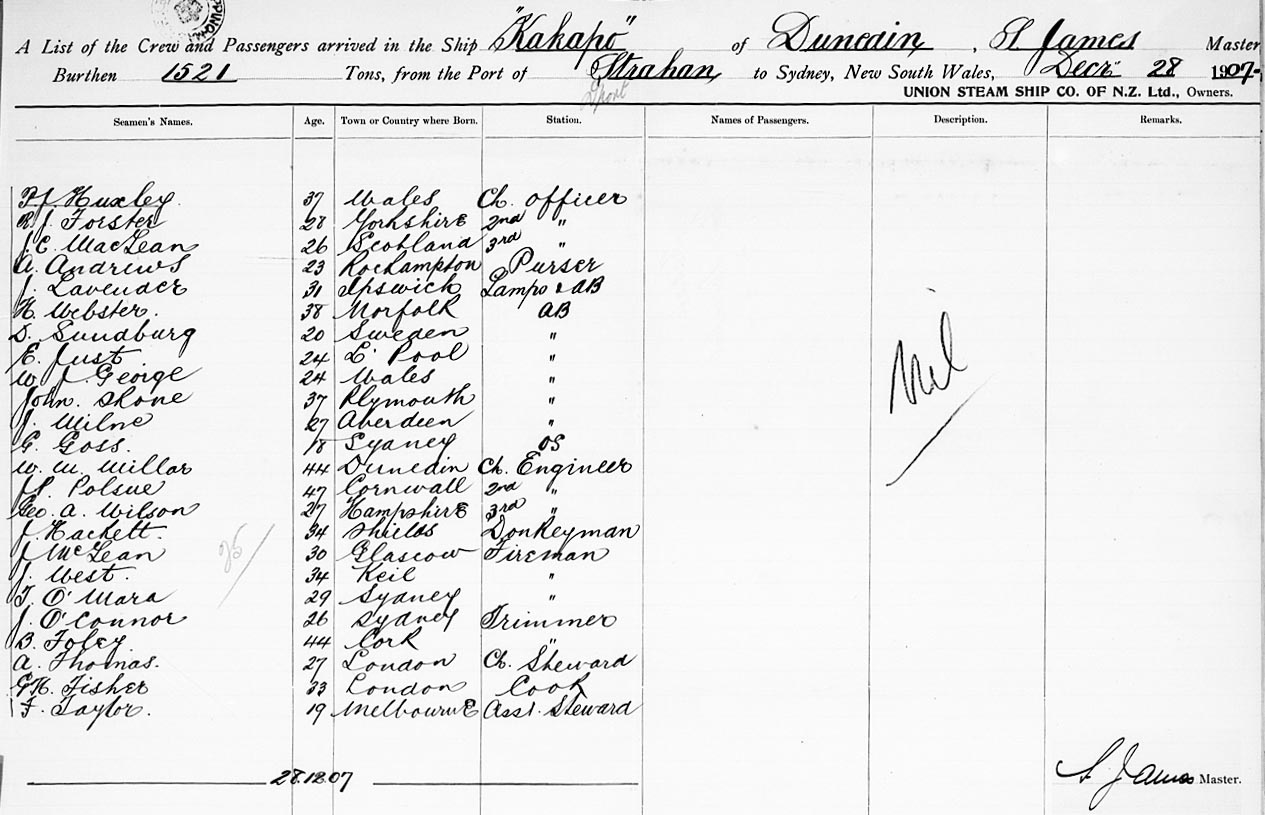 A List of the Crew and Passengers arrived in the Ship "Kakapo" of Dunedin, S. James Master
Burthen 1521 Tons, from the Port of Strahan to Sydney, New South Wales, Decr 28 1907-
UNION STEAM SHIP CO. OF N.Z. Ltd., Owners.
Seamen's Names. Age. Town or Country where Born. Station. Names of Passengers. Description. Remarks.
Huxley. 37 Wales Ch. Officer
R. J. Forster 28 Yorkshire 2nd "
J. C. MacLean 26 Scotland 3rd "
A. Andrews 23 Roehampton Purser
J. Lavender 31 Ipswich Lamps & AB
H. Webster. 38 Norfolk AB
D. Sundburg 20 Sweden "
E. Just 24 L'Pool "
W J George 24 Wales "
John. Skone 37 Plymouth "
J. Milne 27 Aberdeen "
G. Goss. 18 Sydney OS
W. M. Millar 44 Dunedin Ch. Engineer
Polsue 47 Cornwall 2nd "
Geo. A. Wilson 27 Hampshire 3rd "
J. Hackett. 34 Shields Donkeyman
J McLean 30 Glascow Fireman
J. West. 34 Keil "
T. O'Mara 29 Sydney "
J. O'Connor 26 Sydney Trimmer
B. Foley. 44 Cork "
A. Thomas. 27 London Ch. Steward
G H. Fisher 33 London Cook
F. Taylor. 19 Melbourne Asst. Steward
Nil
25/
28.12.07
S. James Master.